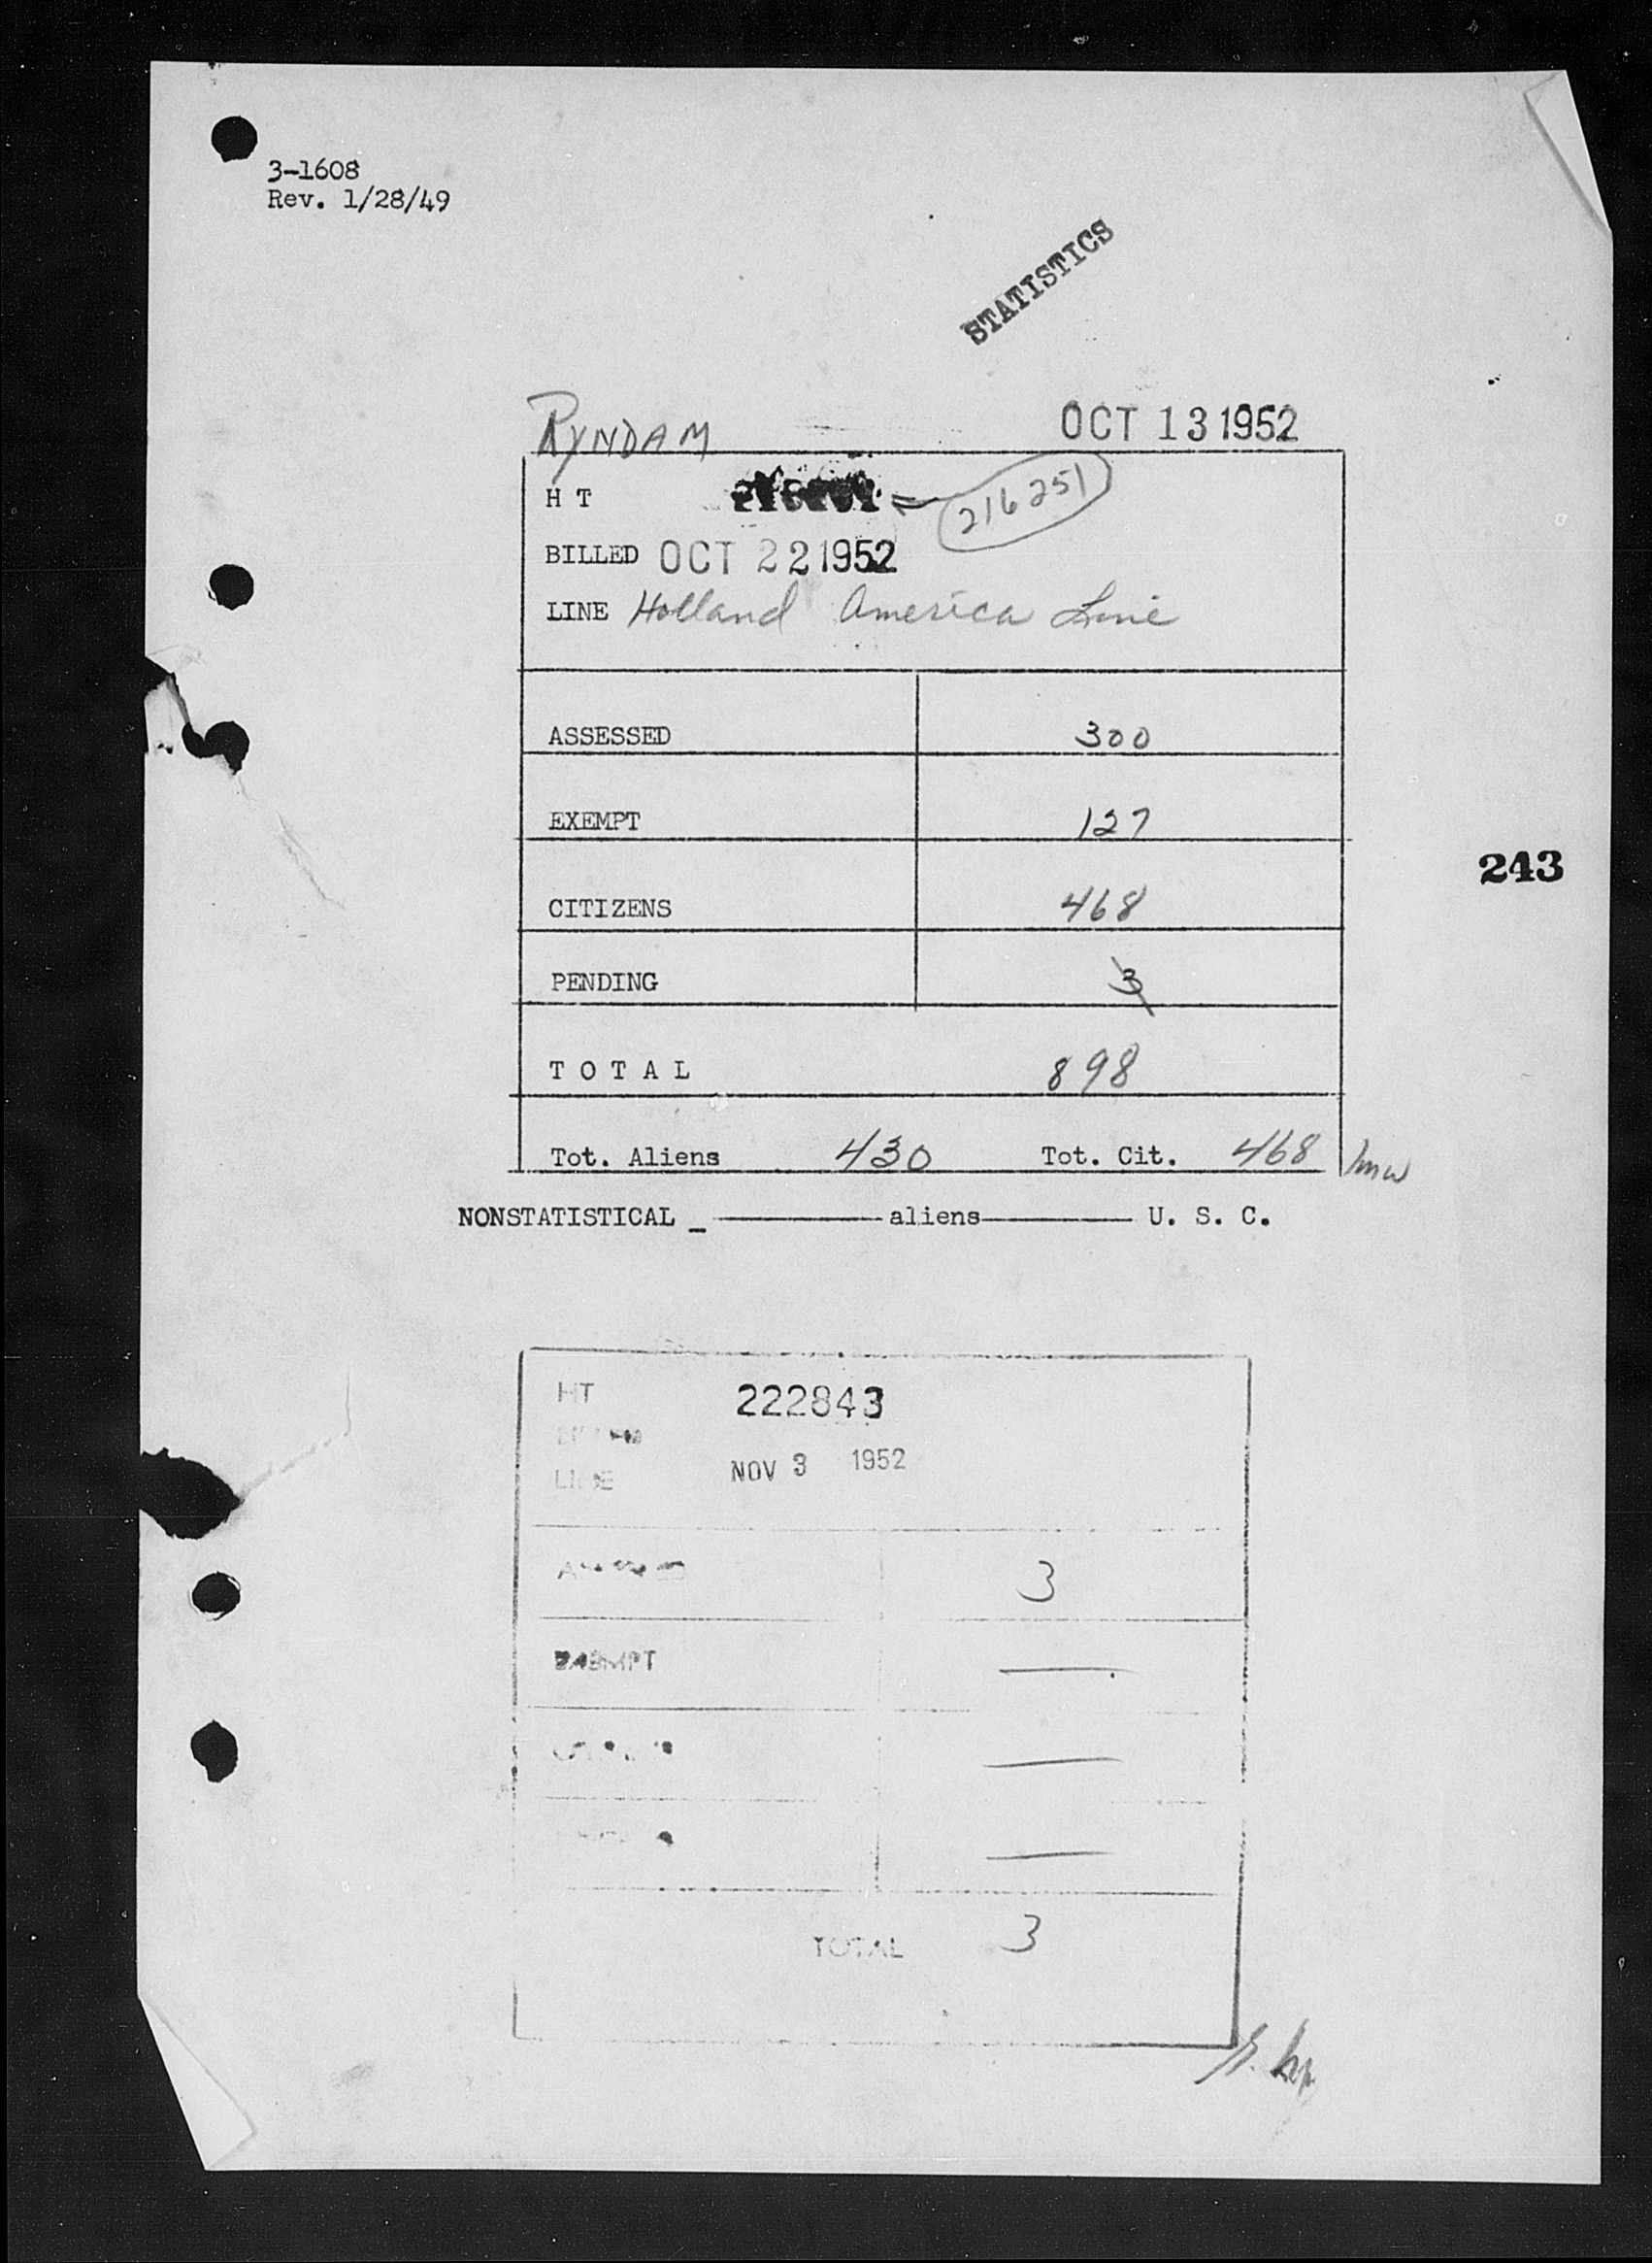 3-1608
Rev. 1/28/49
STATISTICS
RYNDAM OCT 13 1952
H T 216251
BILLED OCT 22 1952
LINE Holland America Line
ASSESSED 300
EXEMPT 127
CITIZENS 468
243
PENDING 3
T O T A L 898
Tot. Aliens 430 Tot. Cit. 468
NONSTATISTICAL _ aliens U. S. C.
HT 222843
LINE NOV 3 1952
3
EXEMPT —
—
—
TOTAL 3